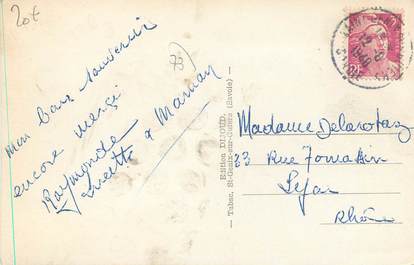 20€
73
Mon bon souvenir
encore merci
Raymonde
Ginette & Maman
Edition DIJOUD,
— Tabac, St-Genix-sur-Guiers (Savoie) —
Madame Delarotas
33 Rue
Rhône